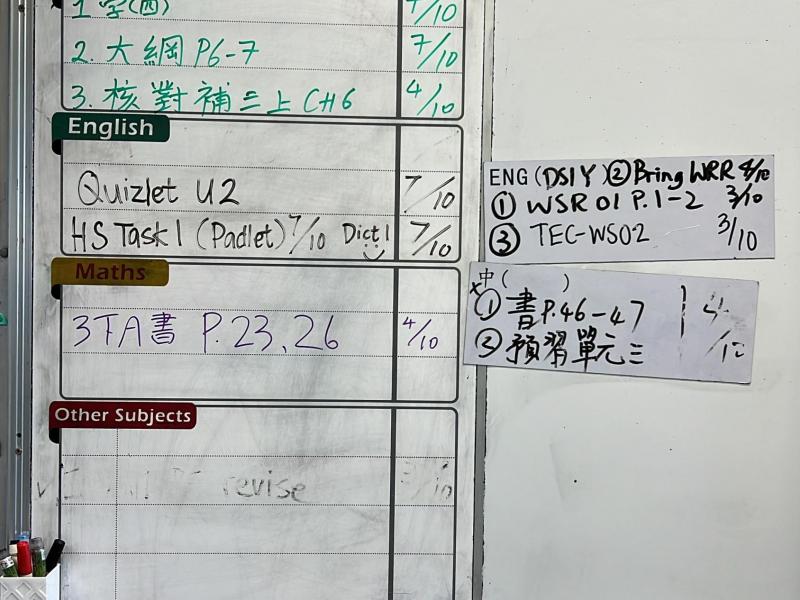 1 字(四) 7/10
2. 大綱 P6-7 7/10
3. 核對補三上 CH6 4/10
English
Quizlet U2 7/10
HS Task 1 (Padlet) 7/10 Dict 1 7/10
Maths
3TA書 P.23, 26 4/10
Other Subjects
revise
ENG (DSIY) ② Bring WRR 4/10
① WSR 01 P.1-2 3/10
③ TEC-WS02 3/10
中( )
① 書P.46-47
② 預習單元三